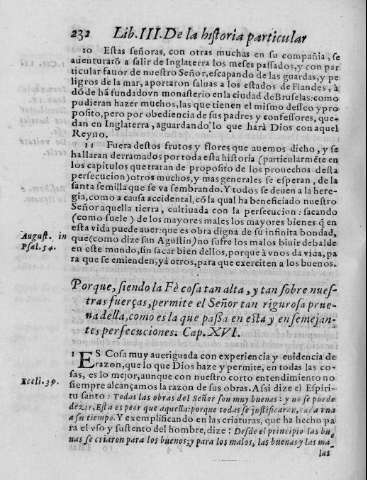 232 Lib. III. De la historia particular
10 Estas señoras, con otras muchas en su compañia, se
auenturarõ a salir de Inglaterra los meses passados, y con par
ticular fauor de nuestro Señor, escapando de las guardas, y pe
ligros de la mar, aportaron saluas a los estados de Flandes, à
dõde hã fundado vn monasterio en la ciudad de Bruselas: como
pudieran hazer muchos, las que tienen el mismo desseo y pro
posito, pero por obediencia de sus padres y confessores, que-
dan en Inglaterra, aguardando lo que harà Dios con aquel
Reyno.
11 Fuera destos frutos y flores que auemos dicho, y se
hallaran derramados por toda esta historia (particularmẽte en
los capitulos que tratan de proposito de los prouechos desta
persecucion) otros muchos, y mas generales se esperan, de la
santa semilla que se va sembrando. Y todos se deuen a la here-
gia, como a causa accidental, cõ la qual ha beneficiado nuestro
Señor aquella tierra, cultiuada con la persecucion: sacando
(como suele) de los mayores males los mayores bienes õ en
esta vida puede auer: que es obra digna de su infinita bondad,
August. in
Psal. 54.
que (como dize san Agustin) no sufre los malos biuir debalde
en este mundo, sin sacar bien dellos, porque à vnos da vida, pa
ra que se emienden, yà otros, para que exerciten a los buenos.
Porque, siendo la Fè cosa tan alta, y tan sobre nues-
tras fuerças, permite el Señor tan rigurosa prue-
ua della, como es la que passa en esta y en semejan-
tes persecuciones. Cap. XVI.
1 ES Cosa muy aueriguada con experiencia y euidencia de
razon, que lo que Dios haze y permite, en todas las co-
sas, es lo mejor, aunque con nuestro corto entendimiento no
Eccli. 39.
siempre alcançamos la razon de sus obras. Assi dize el Espiri-
tu santo: Todas las obras del Señor son muy buenas: y no se puede
dezir, Esto es peor que aquello: porque todas se justificaran, cada vna
a su tiempo. Y exemplificando en las criaturas, que ha hecho pa
ra el vso y sustento del hombre, dize: Desde el principio las bue
nas se criaron para los buenos: y para los malos, las buenas y las ma-
las